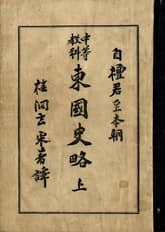 自檀君至本朝
中等教科 東國史略 上
桂洞玄采著譯